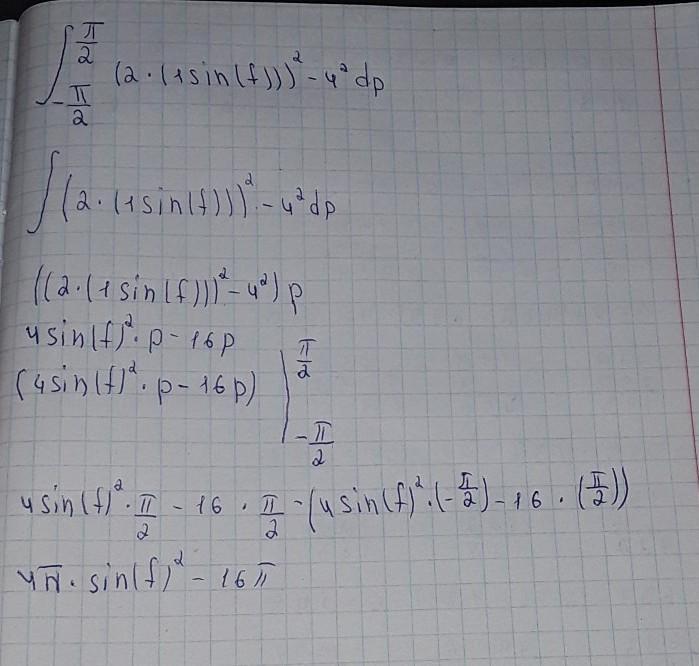 ∫_{-π/2}^{π/2} (2·(1sin(f)))² - 4² dp
∫(2·(1sin(f)))² - 4² dp
((2·(1sin(f)))² - 4²) p
4sin(f)²·p - 16p
(4sin(f)²·p - 16p) |_{-π/2}^{π/2}
4sin(f)²·π/2 - 16·π/2 - (4sin(f)²·(-π/2) - 16·(π/2))
4π·sin(f)² - 16π